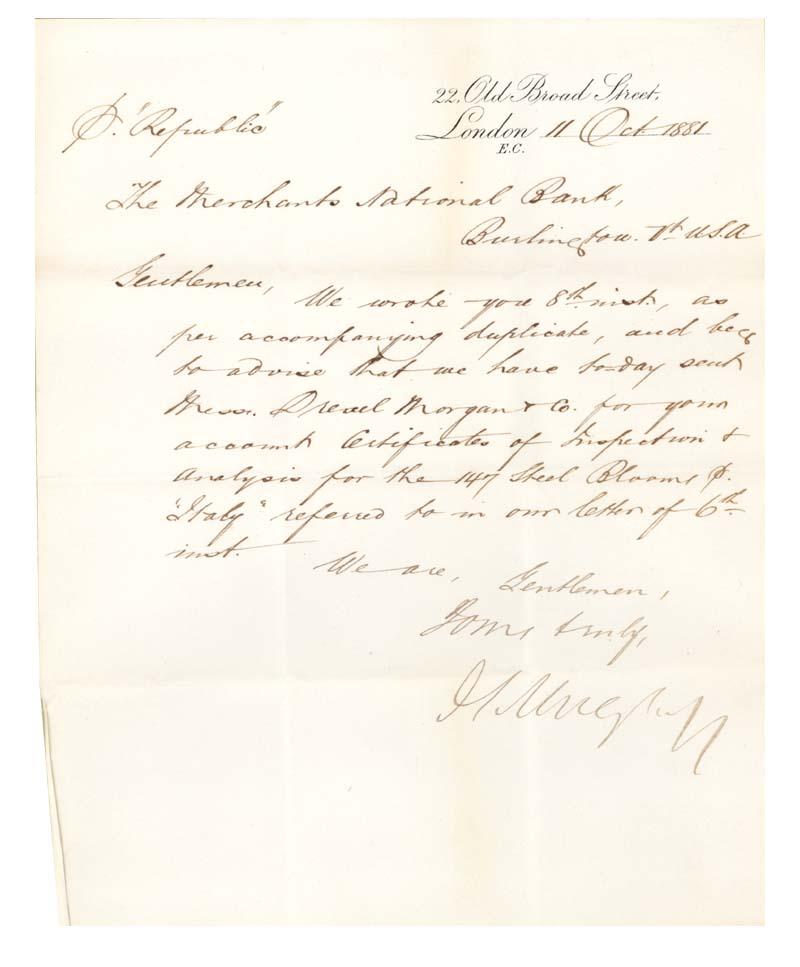 22, Old Broad Street,
London 11 Oct 1881
E.C.
P. "Republic"
The Merchants National Bank,
Burlington. Vt U.S.A
Gentlemen,
We wrote you 8th inst., as
per accompanying duplicate, and beg
to advise that we have to-day sent
Mess. Drexel Morgan & Co. for your
account Certificates of Inspection &
Analysis for the 147 Steel Blooms p.
"Italy" referred to in our letter of 6th
inst.
We are, Gentlemen,
Yours truly,